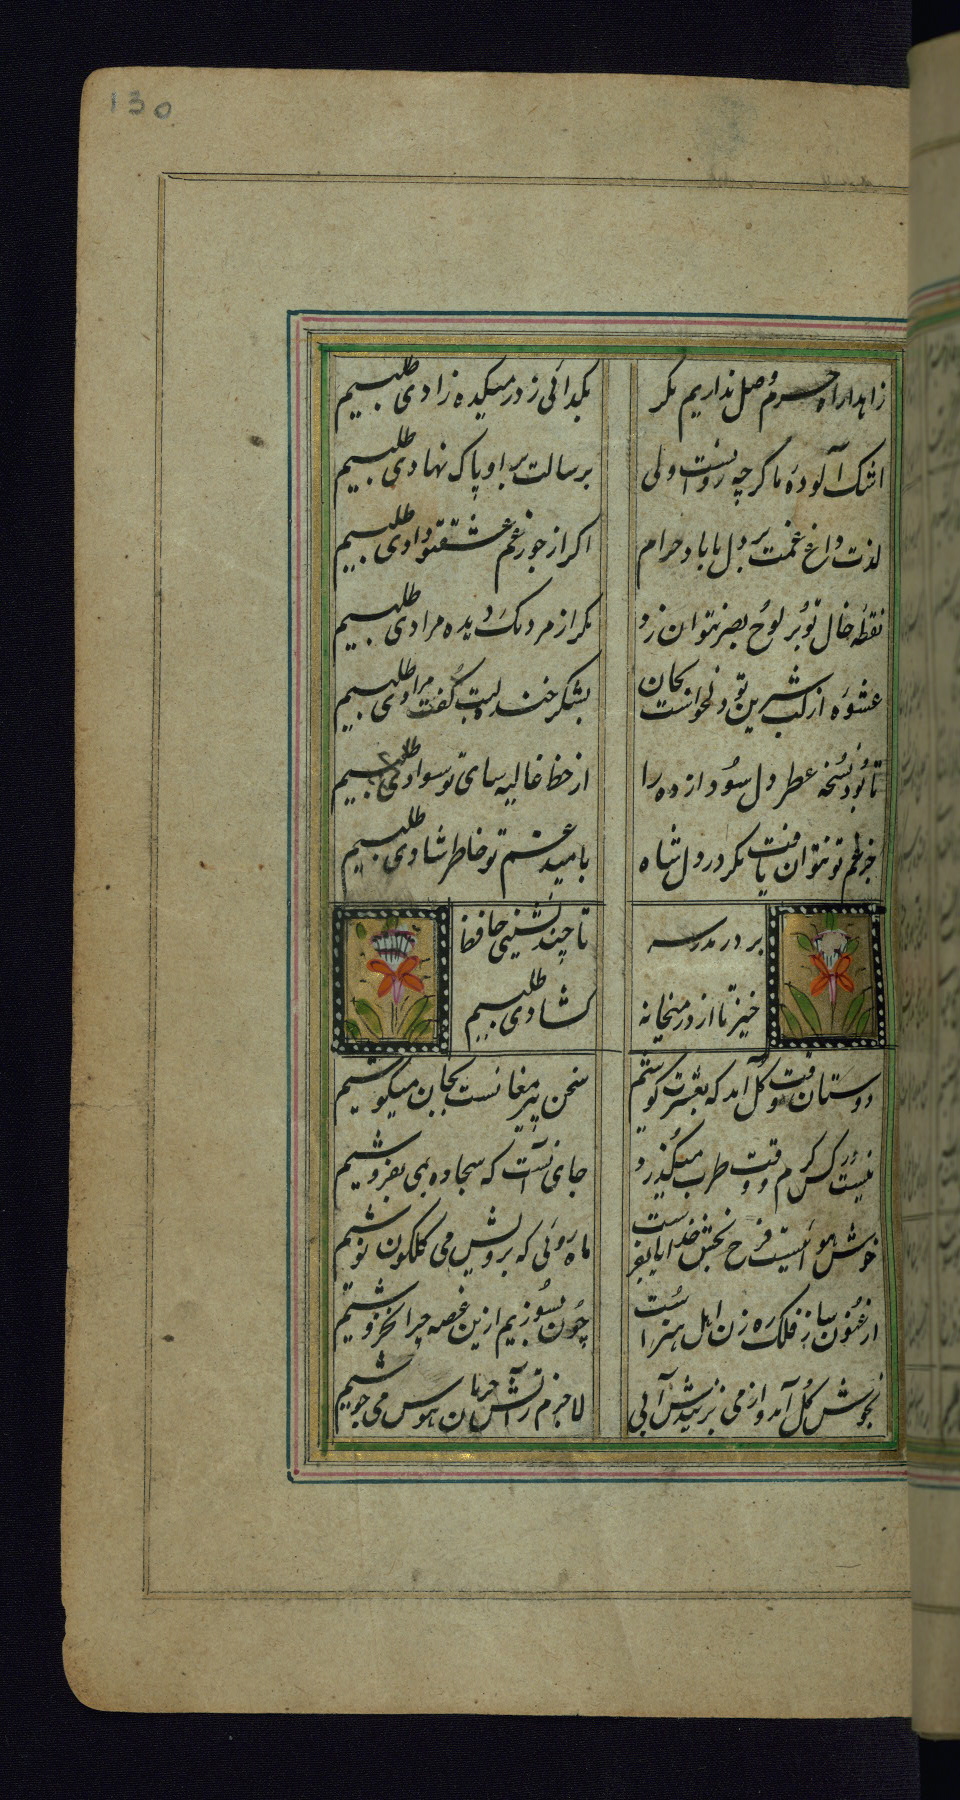 130
زاهدا راه حرم وصل نداریم مگر بگدائی ز در میکده زادی طلبیم
اشک آلوده ما گرچه روانست ولی برسالت بر او پاک نهادی طلبیم
لذت داغ غمت بر دل ما باد حرام اگر از جور غم عشق تو دادی طلبیم
نقطه خال تو بر لوح بصر نتوان زد مگر از مردمک دیده مرادی طلبیم
عشوه از لب شیرین تو دلخواست بجان بشکر خنده لبت گفت مرادی طلبیم
تا بود نسخه عطر دل سودازده را از خط غالیه سای تو سوادی طلبیم
جز غم تو نتوان یافت مگر در دل شاه بامید غم تو خاطر شادی طلبیم
بر در مدرسه تا چند نشینی حافظ
خیز تا از در میخانه گشادی طلبیم
دوستان وقت گل آمد که بعشرت کوشیم سخن پیر مغانست بجان میکوشیم
نیست در کس کرم و وقت طرب میگذرد جای آنست که سجاده بمی بفروشیم
خوش هوائیست فرح بخش خدایا بفرست ماه روئی که برویش می گلگون نوشیم
ارغنون ساز فلک ره زن اهل هنر است چون بسوزیم ازین غصه چرا نخروشیم
بجوش گل آمد و از می نزدیمش آبی لاجرم زآتش حرمان هوس می جوشیم